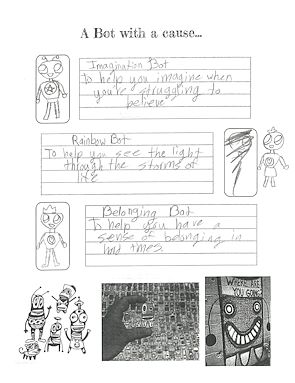 A Bot with a cause...
Imagination Bot
To help you imagine when
you're struggling to
believe
Rainbow Bot
To help you see the light
through the storms of
life
Belonging Bot
To help you have a
sense of belonging in
bad times.
WHERE ARE
YOU GOING?